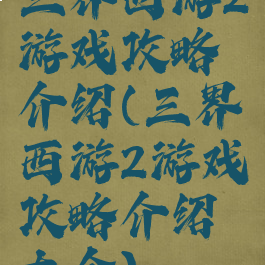 三界西游2
游戏攻略
介绍(三界
西游2游戏
攻略介绍
大全)